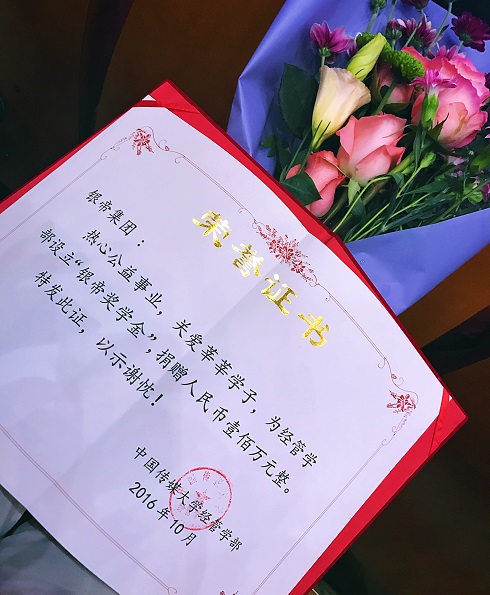 荣誉证书
银帝集团：
热心公益事业，关爱莘莘学子，为经管学
部设立“银帝奖学金”，捐赠人民币壹佰万元整。
特发此证，以示谢忱！
中国传媒大学经管学部
2016年10月